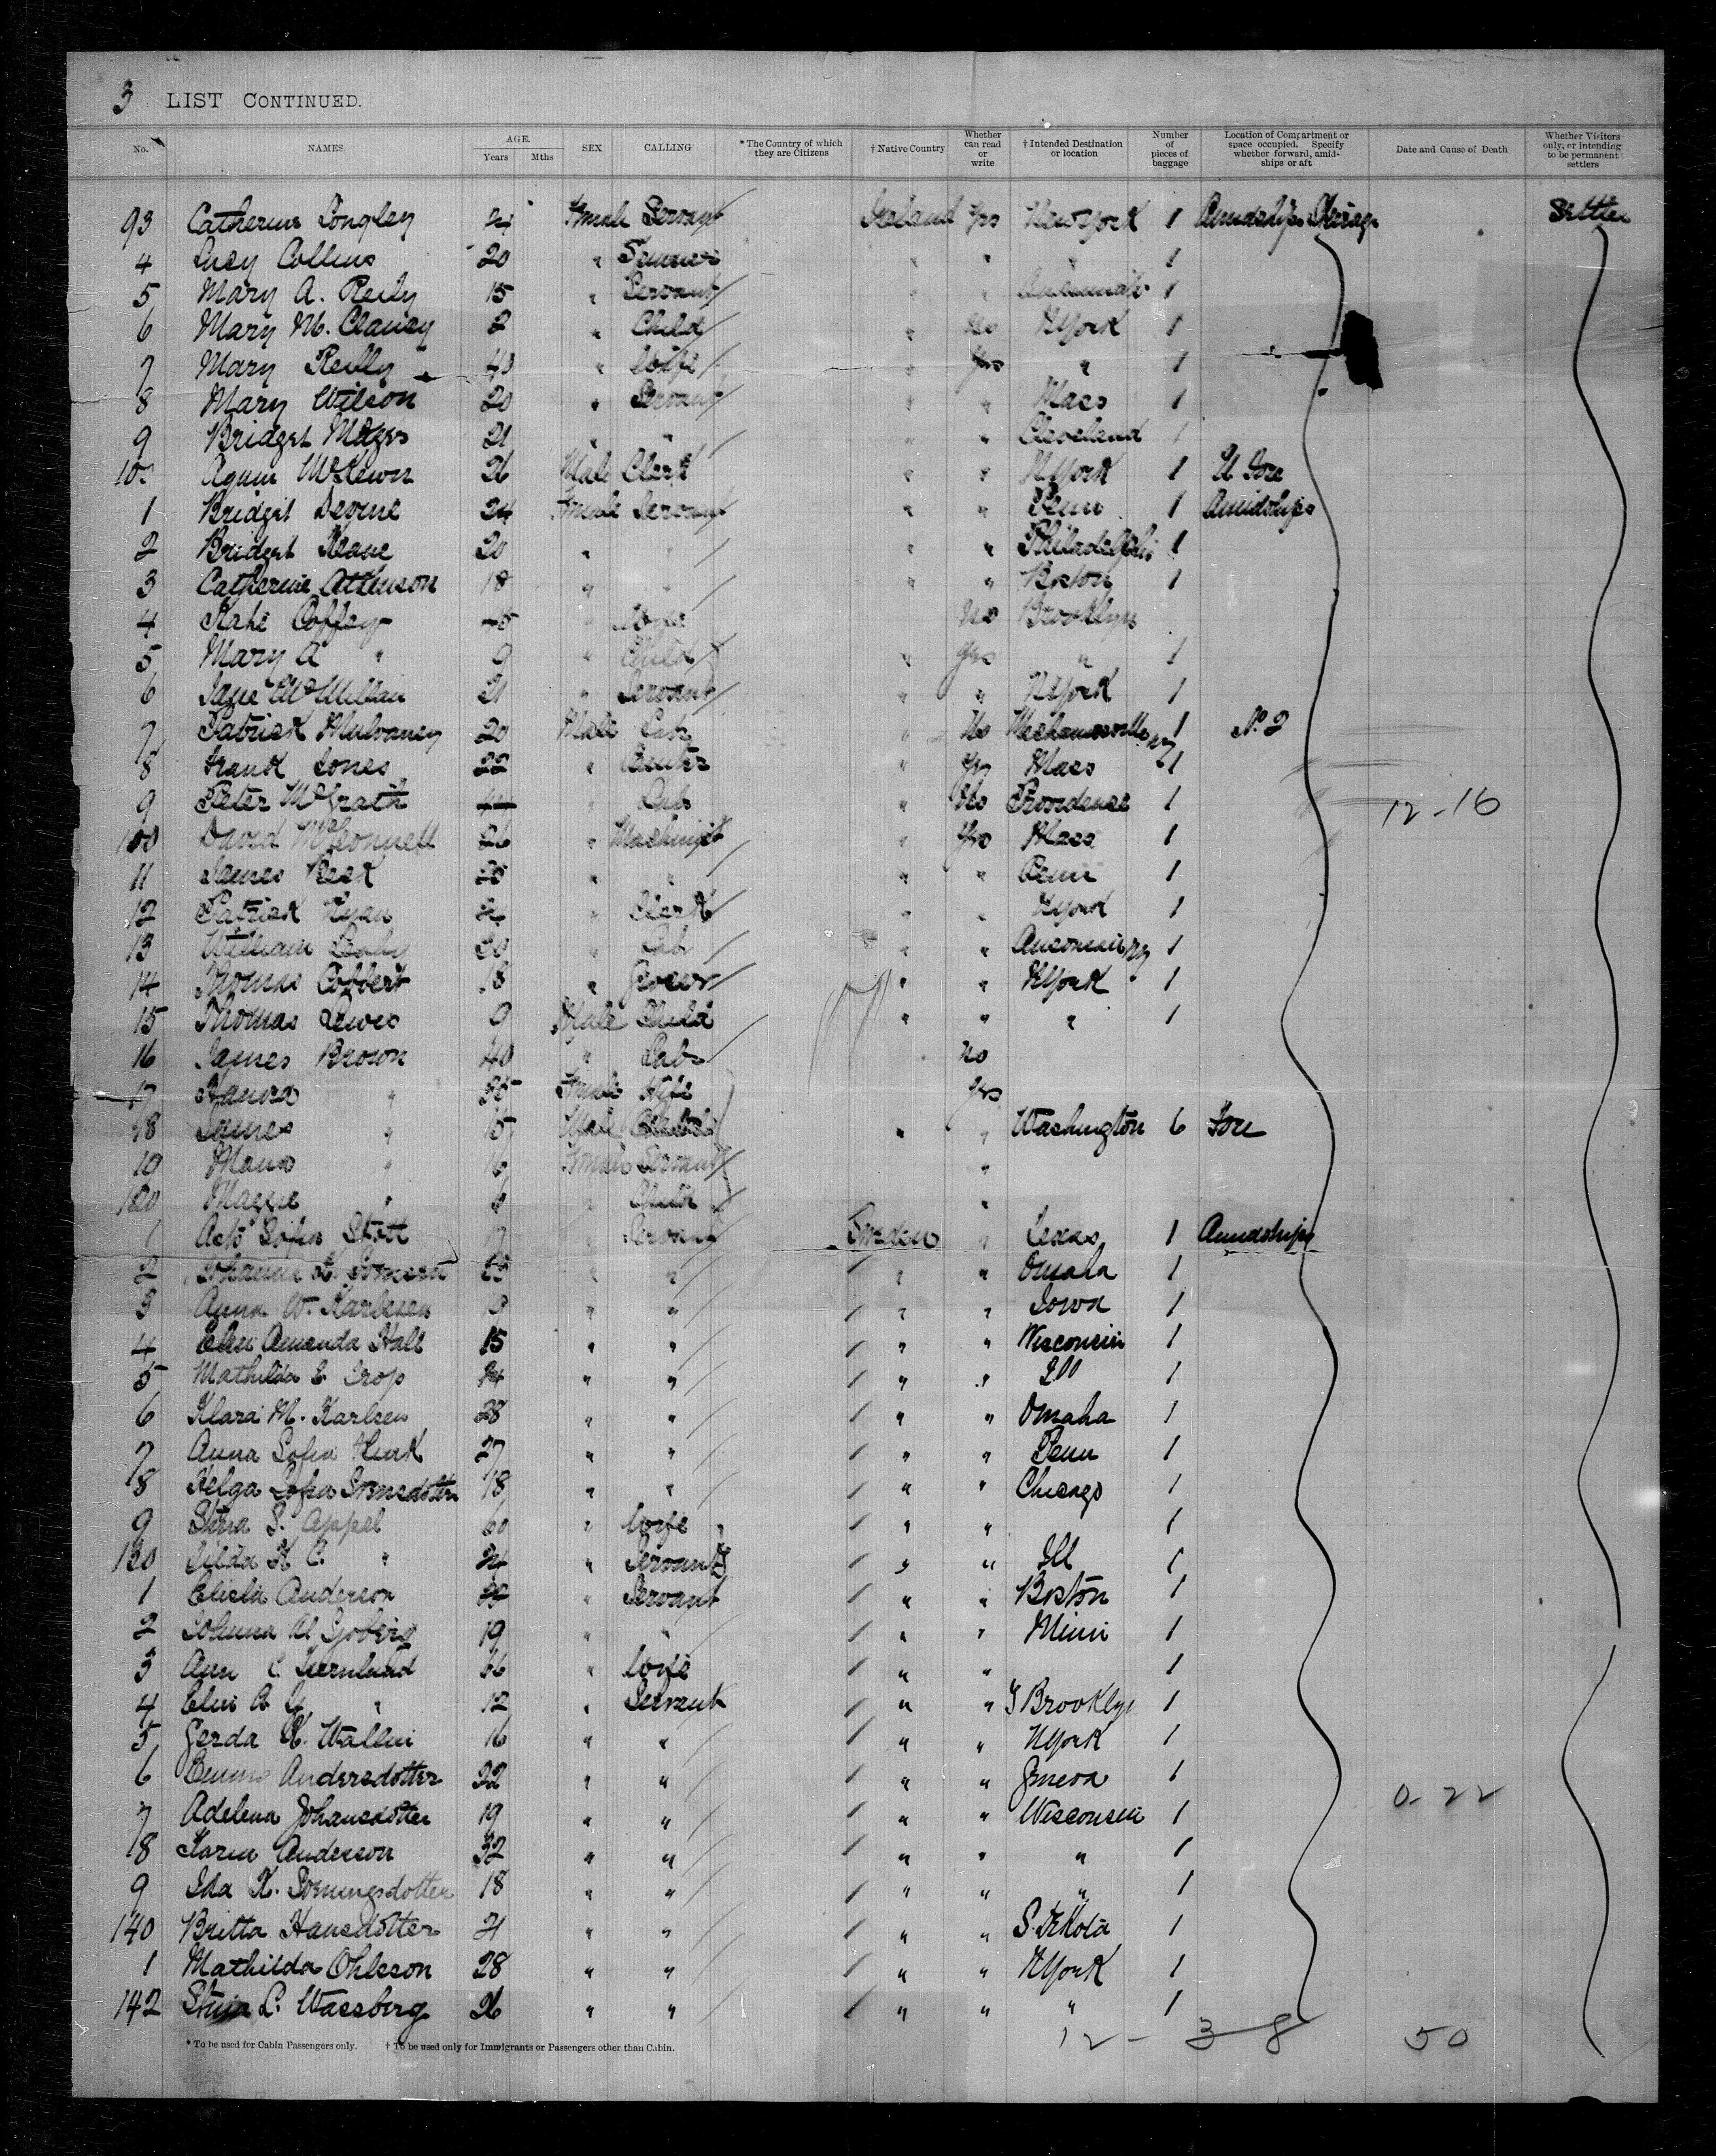 3 LIST CONTINUED.
No. NAMES. AGE. Years Mths SEX CALLING * The Country of which they are Citizens † Native Country Whether can read or write † Intended Destination or location Number of pieces of baggage Location of Compartment or space occupied. Specify whether forward, amidships or aft Date and Cause of Death Whether Visitors only, or intending to be permanent settlers
93 Catherine Longley 24 Female Servant Ireland Yes New York 1 Amidships Steerage Settler
4 Lucy Collins 20 " " " " 1
5 Mary A. Reily 15 " Servant " " 1
6 Mary M. Clancy 2 " Child " No NYork 1
7 Mary Reilly 40 " Wife " Yes " 1
8 Mary Wilson 20 " Servant " " Mass 1
9 Bridget 21 " " " " Cleveland 1
10 McKewn 26 Male Clerk " " NYork 1
1 Bridget Devine 24 Female Servant " " Penn 1 Amidships
2 Bridget Keane 20 " " " " Philadelphia 1
3 Catherine Attenson 18 " " " " Boston 1
4 Kate Coffey 45 " Wife No Brooklyn
5 Mary A " 9 " Child " Yes " 1
6 Jane McMillan 21 " Servant " " NYork 1
7 Patrick Mulvaney 20 Male Lab " No Mechanicsville NY 1 No 2
8 Frank Jones 22 " " Yes Mass 1
9 Peter McGrath 44 " Lab " No Providence 1 12-16
100 David McConnell 26 " Machinist " Yes Mass 1
11 James 25 " " " " Penn 1
12 Patrick Ryan " Clerk " " NYork 1
13 William 30 " Lab " " 1
14 Thomas Cobbert 18 " Grocer " " NYork 1
15 Thomas Lewis 9 Male Child " " " 1
16 James Brown 40 " Lab No
17 Hanora " 35 Female Wife Yes
18 James " 15 Male " " Washington 6 Fore
19 " 16 Female Servant "
120 Maggie " 6 " Child "
1 Sofia 17 Servant Sweden " Texas 1 Amidships
2 Johanna " " " " Omaha 1
3 Anna W. Karlesen 19 " " " " Iowa 1
4 Elin Amanda Hall 15 " " " " Wisconsin 1
5 Mathilda E. 24 " " " " Ill 1
6 Klara M. Karlsen 28 " " " " Omaha 1
7 Anna Sofia 27 " " " " Penn 1
8 Helga Sofia 18 " " " " Chicago 1
9 Stina S. Appel 60 " Wife " " 1
130 Hilda K C. " 24 " Servant " " Ill 1
1 Anderson " Servant " " Boston 1
2 Johanna 19 " " " " Minn 1
3 Ann C. " Wife " " 1
4 Elin A " 12 " Servant " " Brooklyn 1
5 Gerda K. Wallin 16 " " " " NYork 1
6 Emma Andersdotter 22 " " " " Geneva 1 0-22
7 Adelena Johansdotter 19 " " " " Wisconsin 1
8 Karin Anderson 32 " " " " " 1
9 Ida K. 18 " " " " " 1
140 Britta Hansdotter 21 " " " " S. Dkota 1
1 Mathilda Ohlsson 28 " " " " NYork 1
142 Stina L. Wassberg 26 " " " " " 1
12 - 38 50
* To be used for Cabin Passengers only. † To be used only for Immigrants or Passengers other than Cabin.